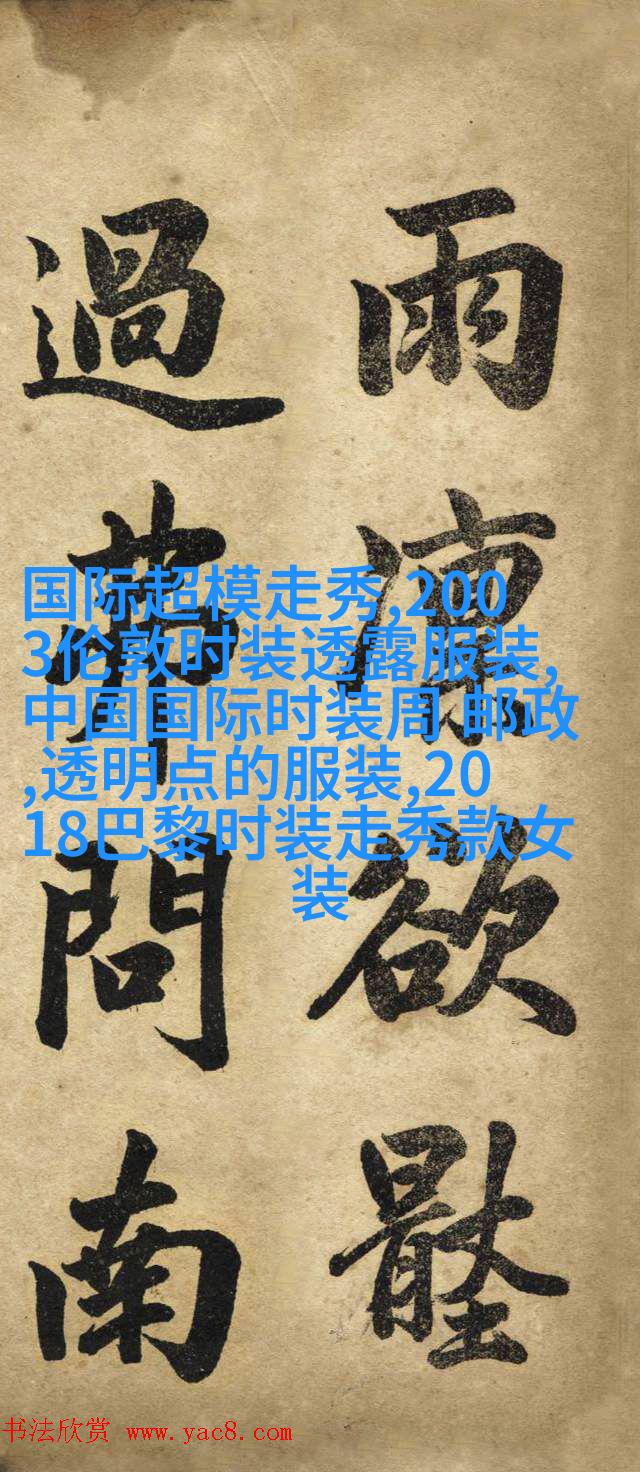 雨欲
過問南
国际超模走秀,200
3伦敦时装透露服装,
中国国际时装周 邮政
,透明点的服装,20
18巴黎时装走秀款女
装
书法欣赏 www.yac8.com